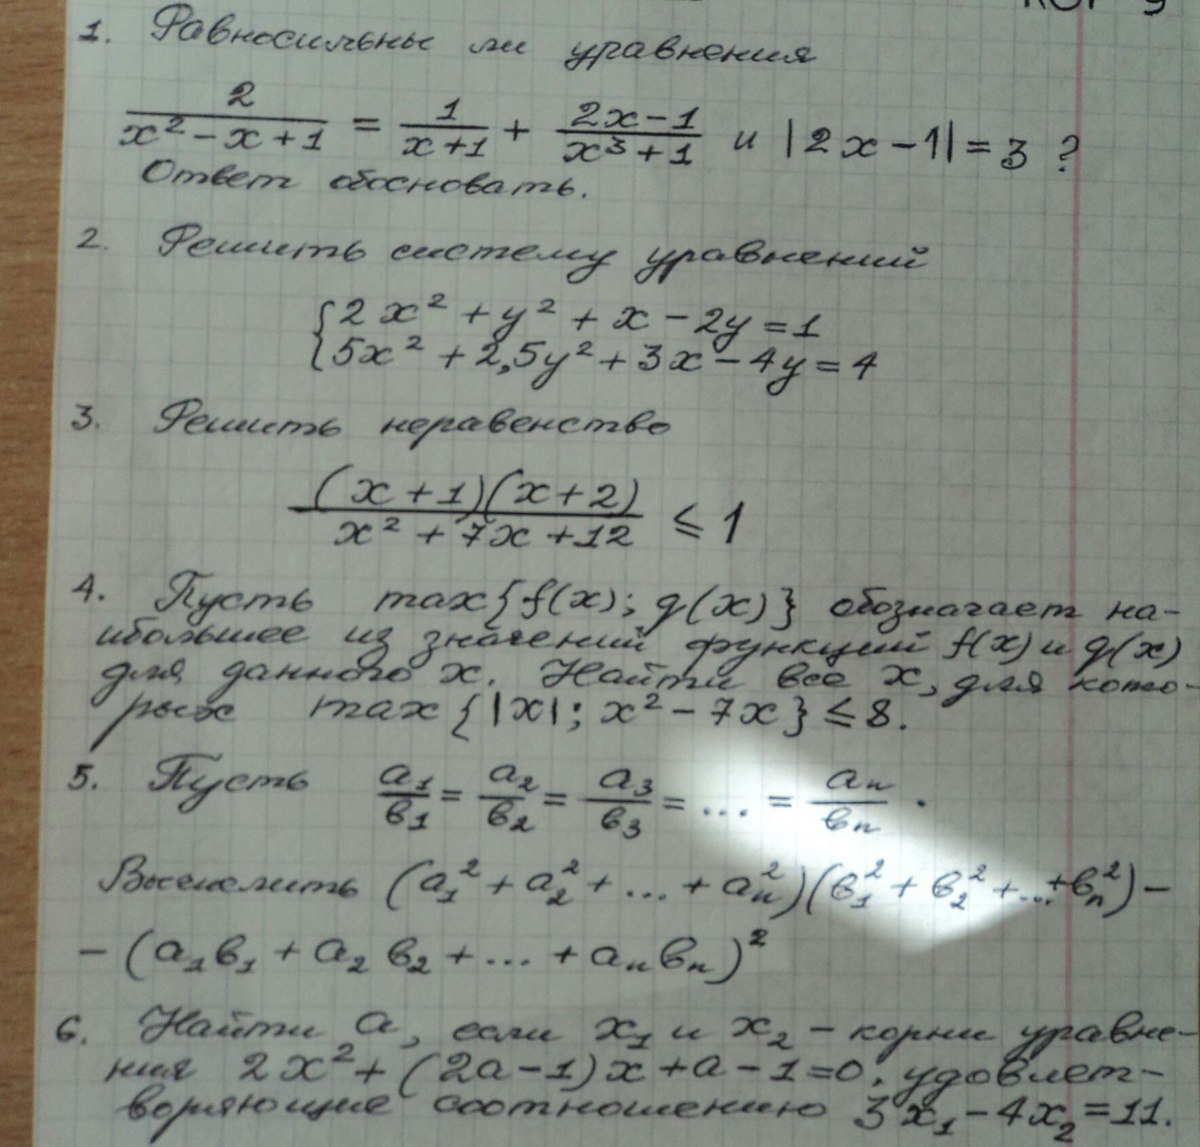 1. Равносильны ли уравнения
2/(x² - x + 1) = 1/(x + 1) + (2x - 1)/(x³ + 1) и |2x - 1| = 3 ?
Ответ обосновать.
2. Решить систему уравнений
{2x² + y² + x - 2y = 1
{5x² + 2,5y² + 3x - 4y = 4
3. Решить неравенство
(x + 1)(x + 2)/(x² + 7x + 12) ≤ 1
4. Пусть max{f(x); g(x)} обозначает на-
ибольшее из значений функций f(x) и g(x)
для данного x. Найти все x, для кото-
рых max{|x|; x² - 7x} ≤ 8.
5. Пусть a₁/в₁ = a₂/в₂ = a₃/в₃ = ... = aₙ/вₙ.
Вычислить (a₁² + a₂² + ... + aₙ²)(в₁² + в₂² + ... + вₙ²) -
- (a₁в₁ + a₂в₂ + ... + aₙвₙ)²
6. Найти a, если x₁ и x₂ - корни уравне-
ния 2x² + (2a - 1)x + a - 1 = 0, удовлет-
воряющие соотношению 3x₁ - 4x₂ = 11.